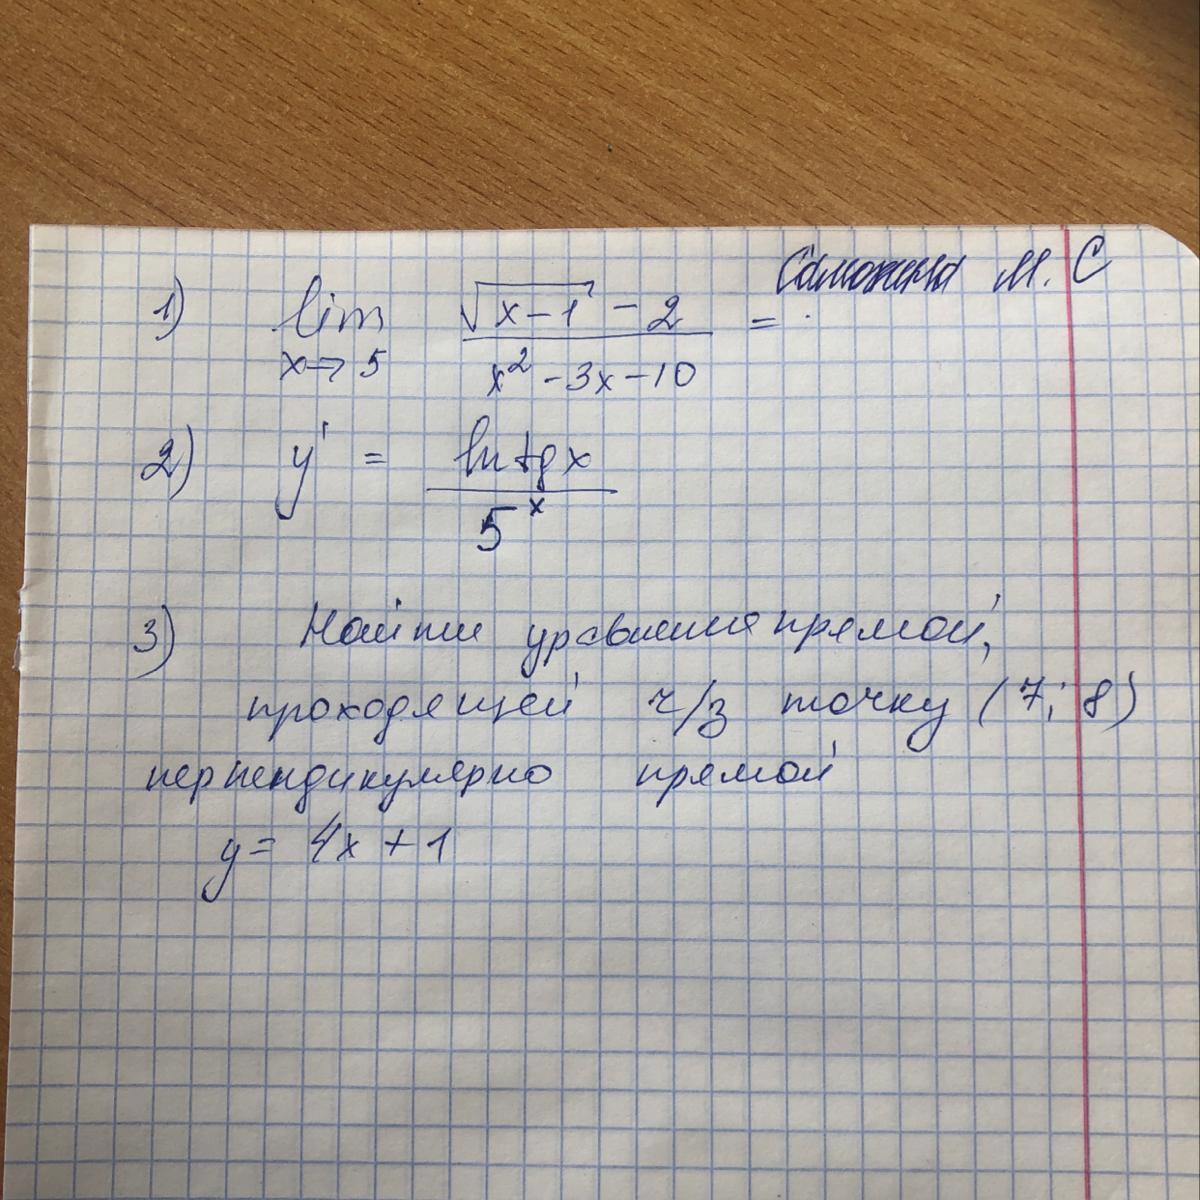 М. С
1) lim x→5 (√(x-1) - 2) / (x² - 3x - 10) =
2) y' = ln tg x / 5ˣ
3) Найти уравнения прямой,
проходящей ч/з точку (7; 8)
перпендикулярно прямой
y = 4x + 1